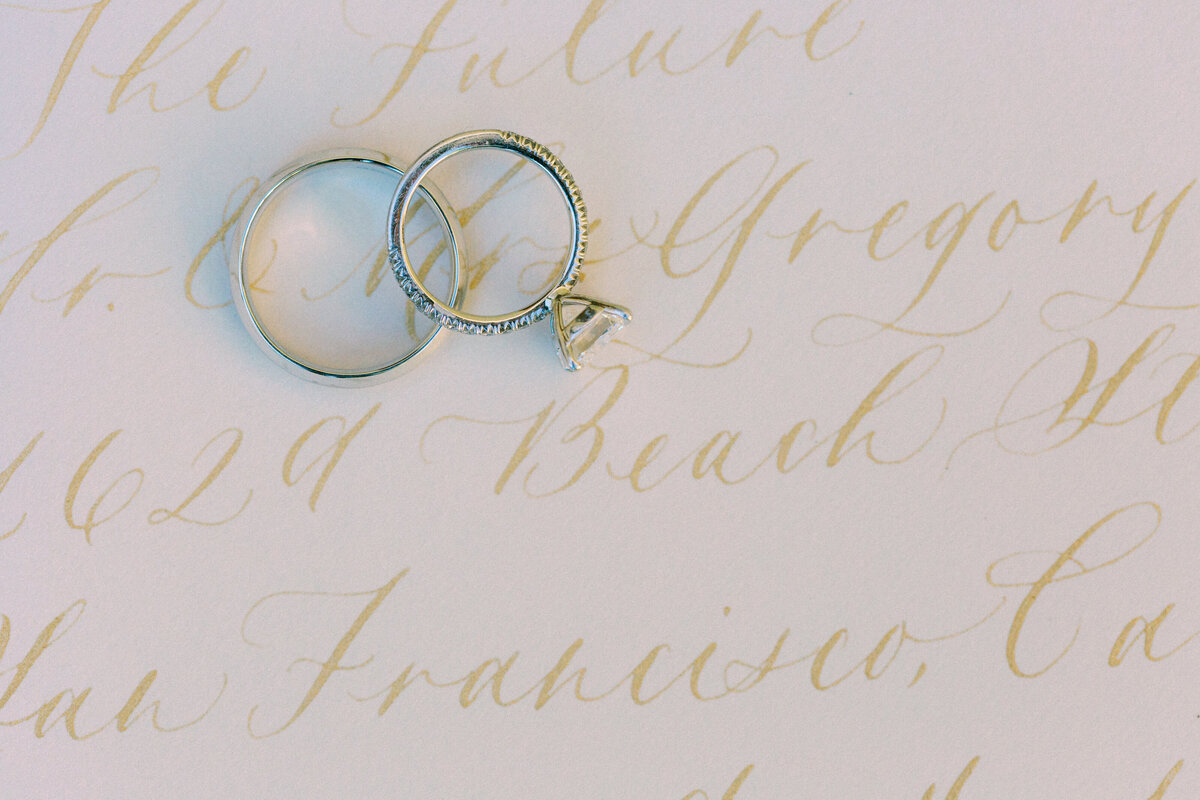 The Future
Mr. & Mrs Gregory
1629 Beach St
San Francisco, Ca